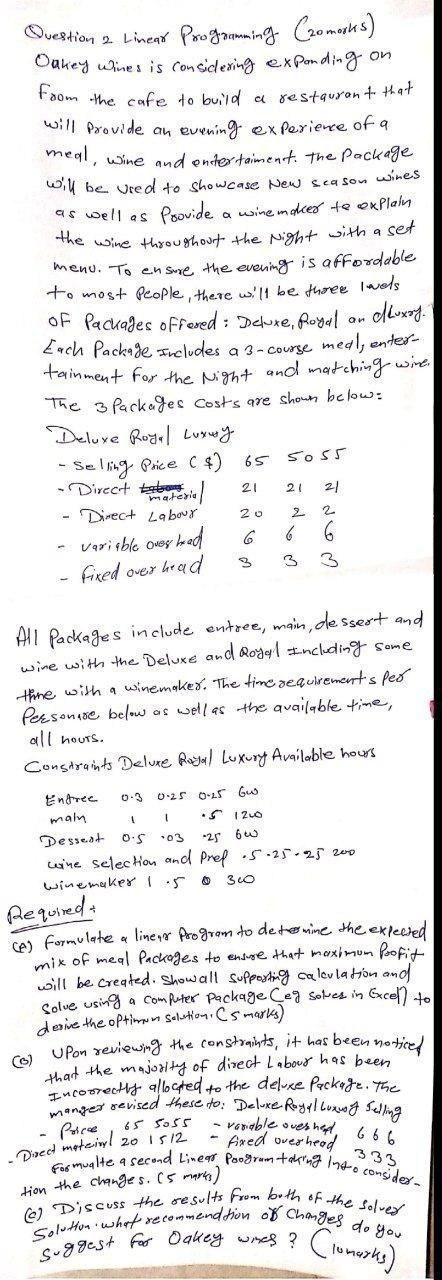 Question 2 Linear Programming. (20 marks)
Oakey wines is considering expanding on
from the cafe to build a restaurant that
will Provide an evening experience of a
meal, wine and entertaiment. The Package
will be used to showcase New season wines
as well as Provide a winemaker to explain
the wine throughout the Night with a set
menu. To ensure the evening is affordable
to most People, there will be three levels
of Packages offered: Deluxe, Royal an dLuxry.
Each Package Includes a 3-course meal, enter-
tainment for the Night and matching wine.
The 3 Packages costs are shown below:
Deluxe Royal Luxury
- Selling Price ($) 65 50 55
- Direct material 21 21 21
- Direct Labour 20 2 2
- variable overhead 6 6 6
- fixed over head 3 3 3
All Packages include entree, main, dessert and
wine with the Deluxe and Royal Including some
time with a winemaker. The time requirements Per
Person are below as well as the available time,
all hours.
Constraints Deluxe Royal Luxury Available hours
Entree 0.3 0.25 0.25 600
main 1 1 .5 1200
Dessert 0.5 .03 .25 600
wine selection and Prep .5 .25 .25 200
winemaker 1 .5 0 300
Required:
(A) Formulate a linear Program to determine the expected
mix of meal Packages to ensure that maximum Profit
will be created. Show all supporting calculation and
Solve using a computer package (eg solver in Excel) to
derive the optimum solution. (5 marks)
(B) Upon reviewing the constraints, it has been noticed
that the majority of direct Labour has been
Incorrectly allocated to the deluxe Package. The
manger revised these to: Deluxe Royal Luxury Selling
- Price 65 5055 - variable overhead 6 6 6
- Direct material 20 15 12 - fixed overhead 3 3 3
Formualte a second Linear Program taking Into consider-
tion the changes. (5 marks)
(C) Discuss the results from both of the solver
Solution. what recommendtion of changes do you
suggest for Oakey wines? (10 marks)